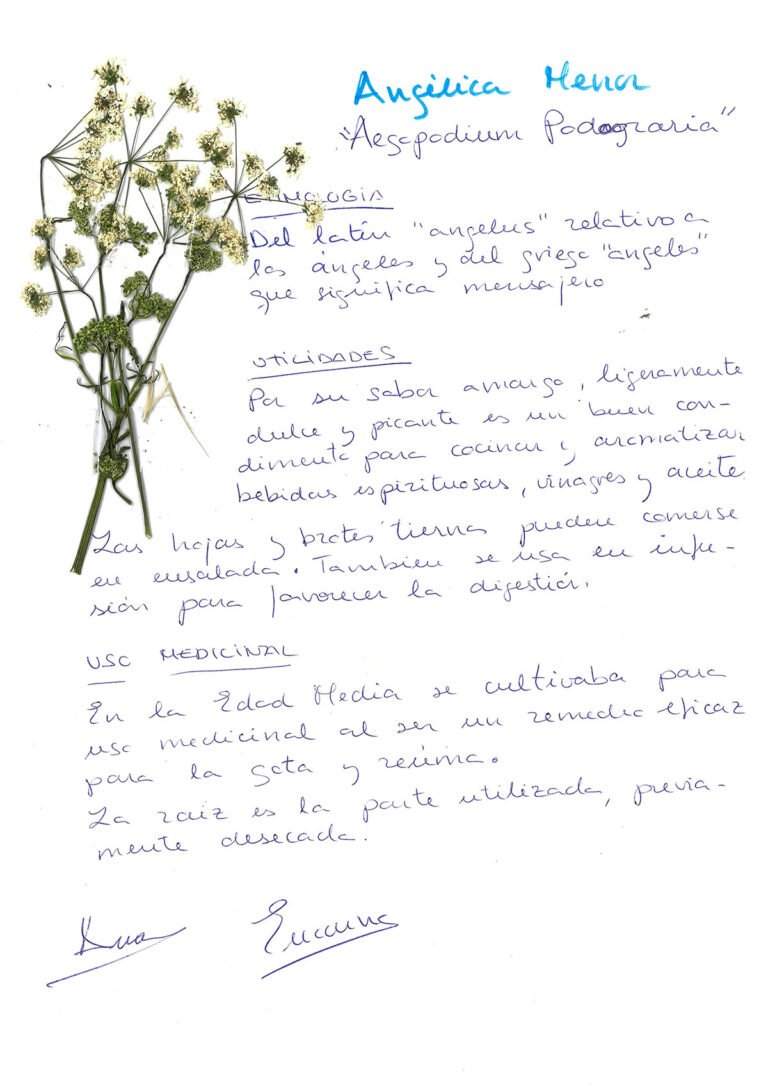 Angélica Menor
"Aegopodium Podograria"
ETIMOLOGIA
Del latín "angelus" relativo a
los ángeles y del griego "angeles"
que significa mensajero
UTILIDADES
Por su sabor amargo, ligeramente
dulce y picante es un buen con-
dimento para cocinar y aromatizar
bebidas espirituosas, vinagres y aceite
Las hojas y brotes tierna pueden comerse
en ensalada. Tambien se usa en infu-
sión para favorecer la digestión.
USO MEDICINAL
En la Edad Media se cultivaba para
uso medicinal al ser un remedio eficaz
para la gota y reúma.
La raiz es la parte utilizada, previa-
mente desecada.
Ana